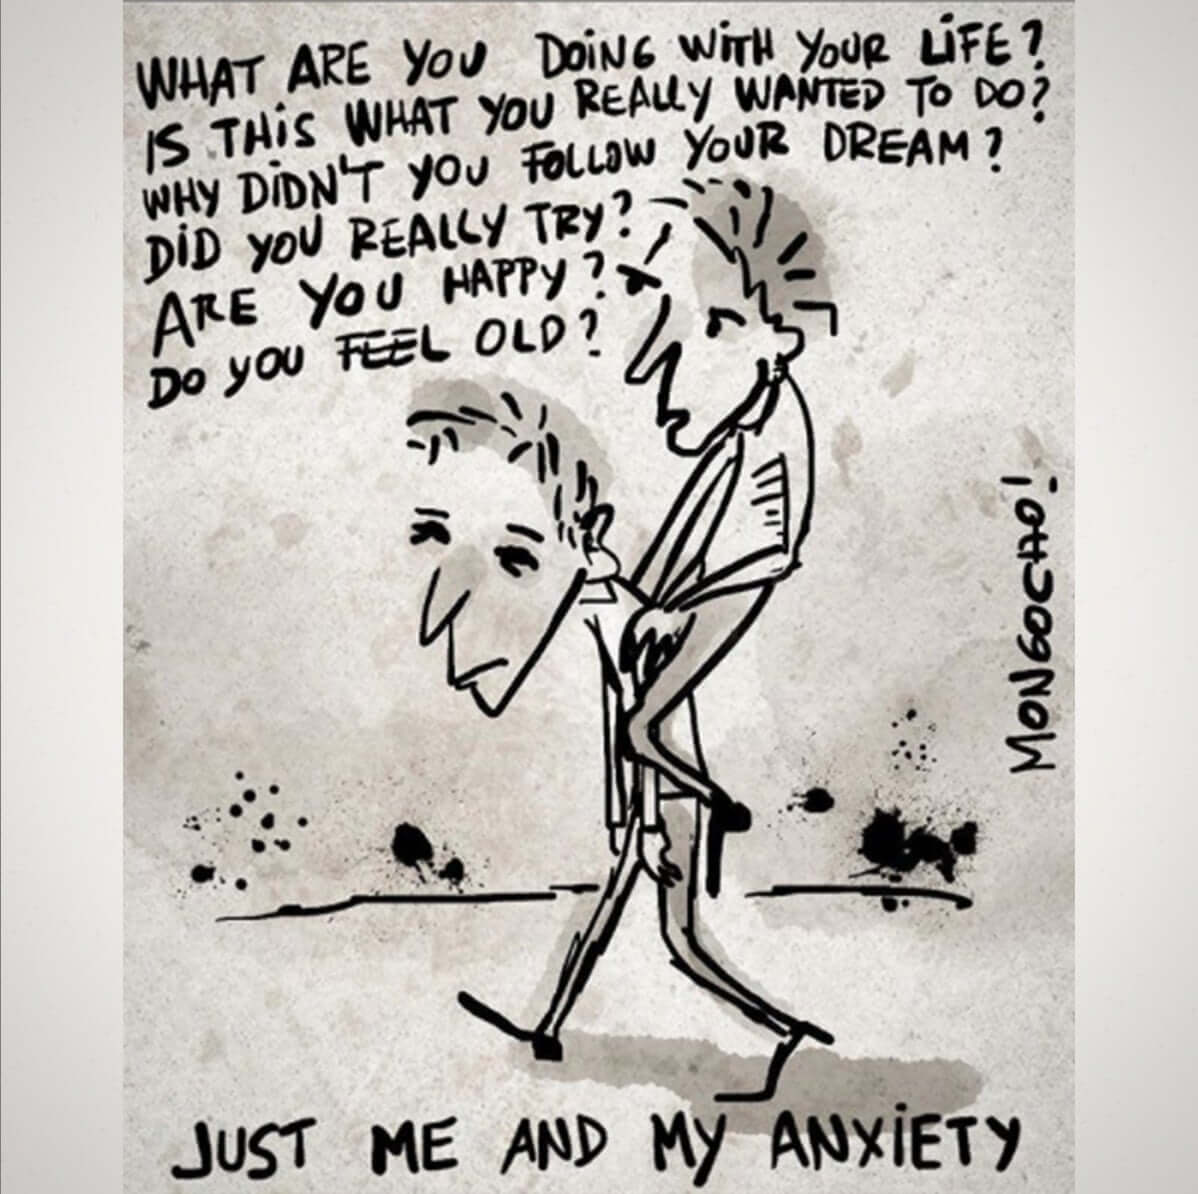 WHAT ARE YOU DOING WITH YOUR LIFE?
IS THIS WHAT YOU REALLY WANTED TO DO?
WHY DIDN'T YOU FOLLOW YOUR DREAM?
DID YOU REALLY TRY?
ARE YOU HAPPY?
DO YOU FEEL OLD?
MONGOCHO!
JUST ME AND MY ANXIETY